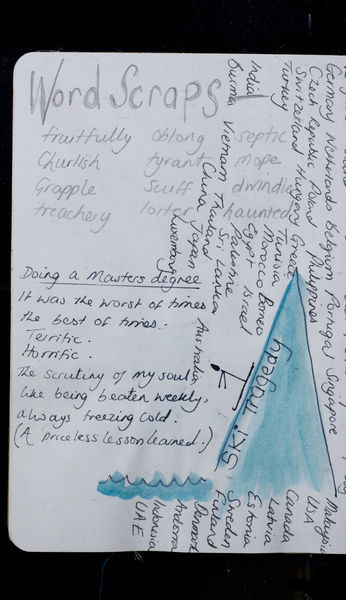 Word Scraps
fruitfully oblong septic
Churlish tyrant mope
Grapple Scuff dwindle
treachery loiter haunted
Doing a Masters degree
It was the worst of times
the best of times.
Terrific.
Horrific.
The scrutiny of my soul
like being beaten weekly,
always freezing cold.
(A priceless lesson learned.)
Germany Netherlands Belgium Portugal Singapore
Czech Republic Poland Philippines
Switzerland Hungary Greece
Turkey
Tunisia
Morocco Borneo
Egypt Israel
Palestine
India
Burma Vietnam Thailand Sri Lanka
China Japan
Luxembourg
Australia
Ski Tragedy
Malaysia
USA
Canada
Latvia
Estonia
Sweden
Finland
Denmark
Andorra
Indonesia
UAE